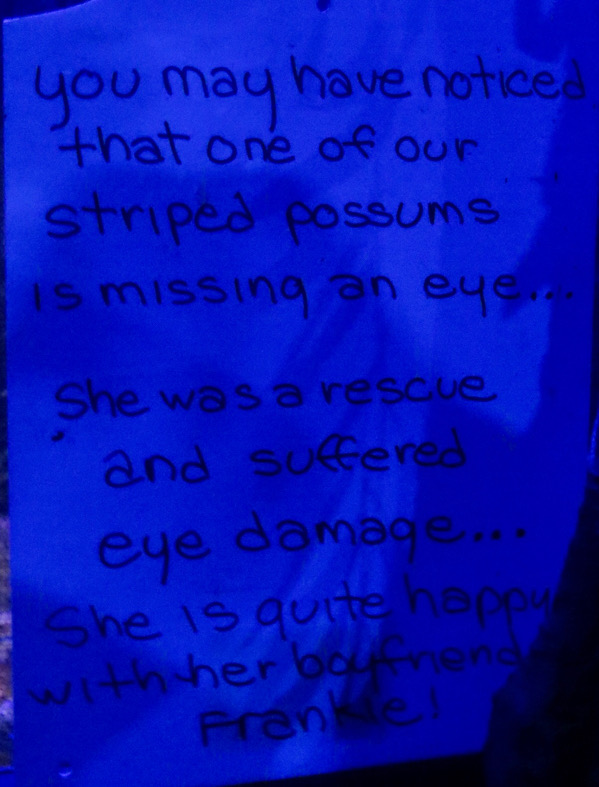 you may have noticed
that one of our
striped possums
is missing an eye...
She was a rescue
and suffered
eye damage...
She is quite happy
with her boyfriend
Frankie!